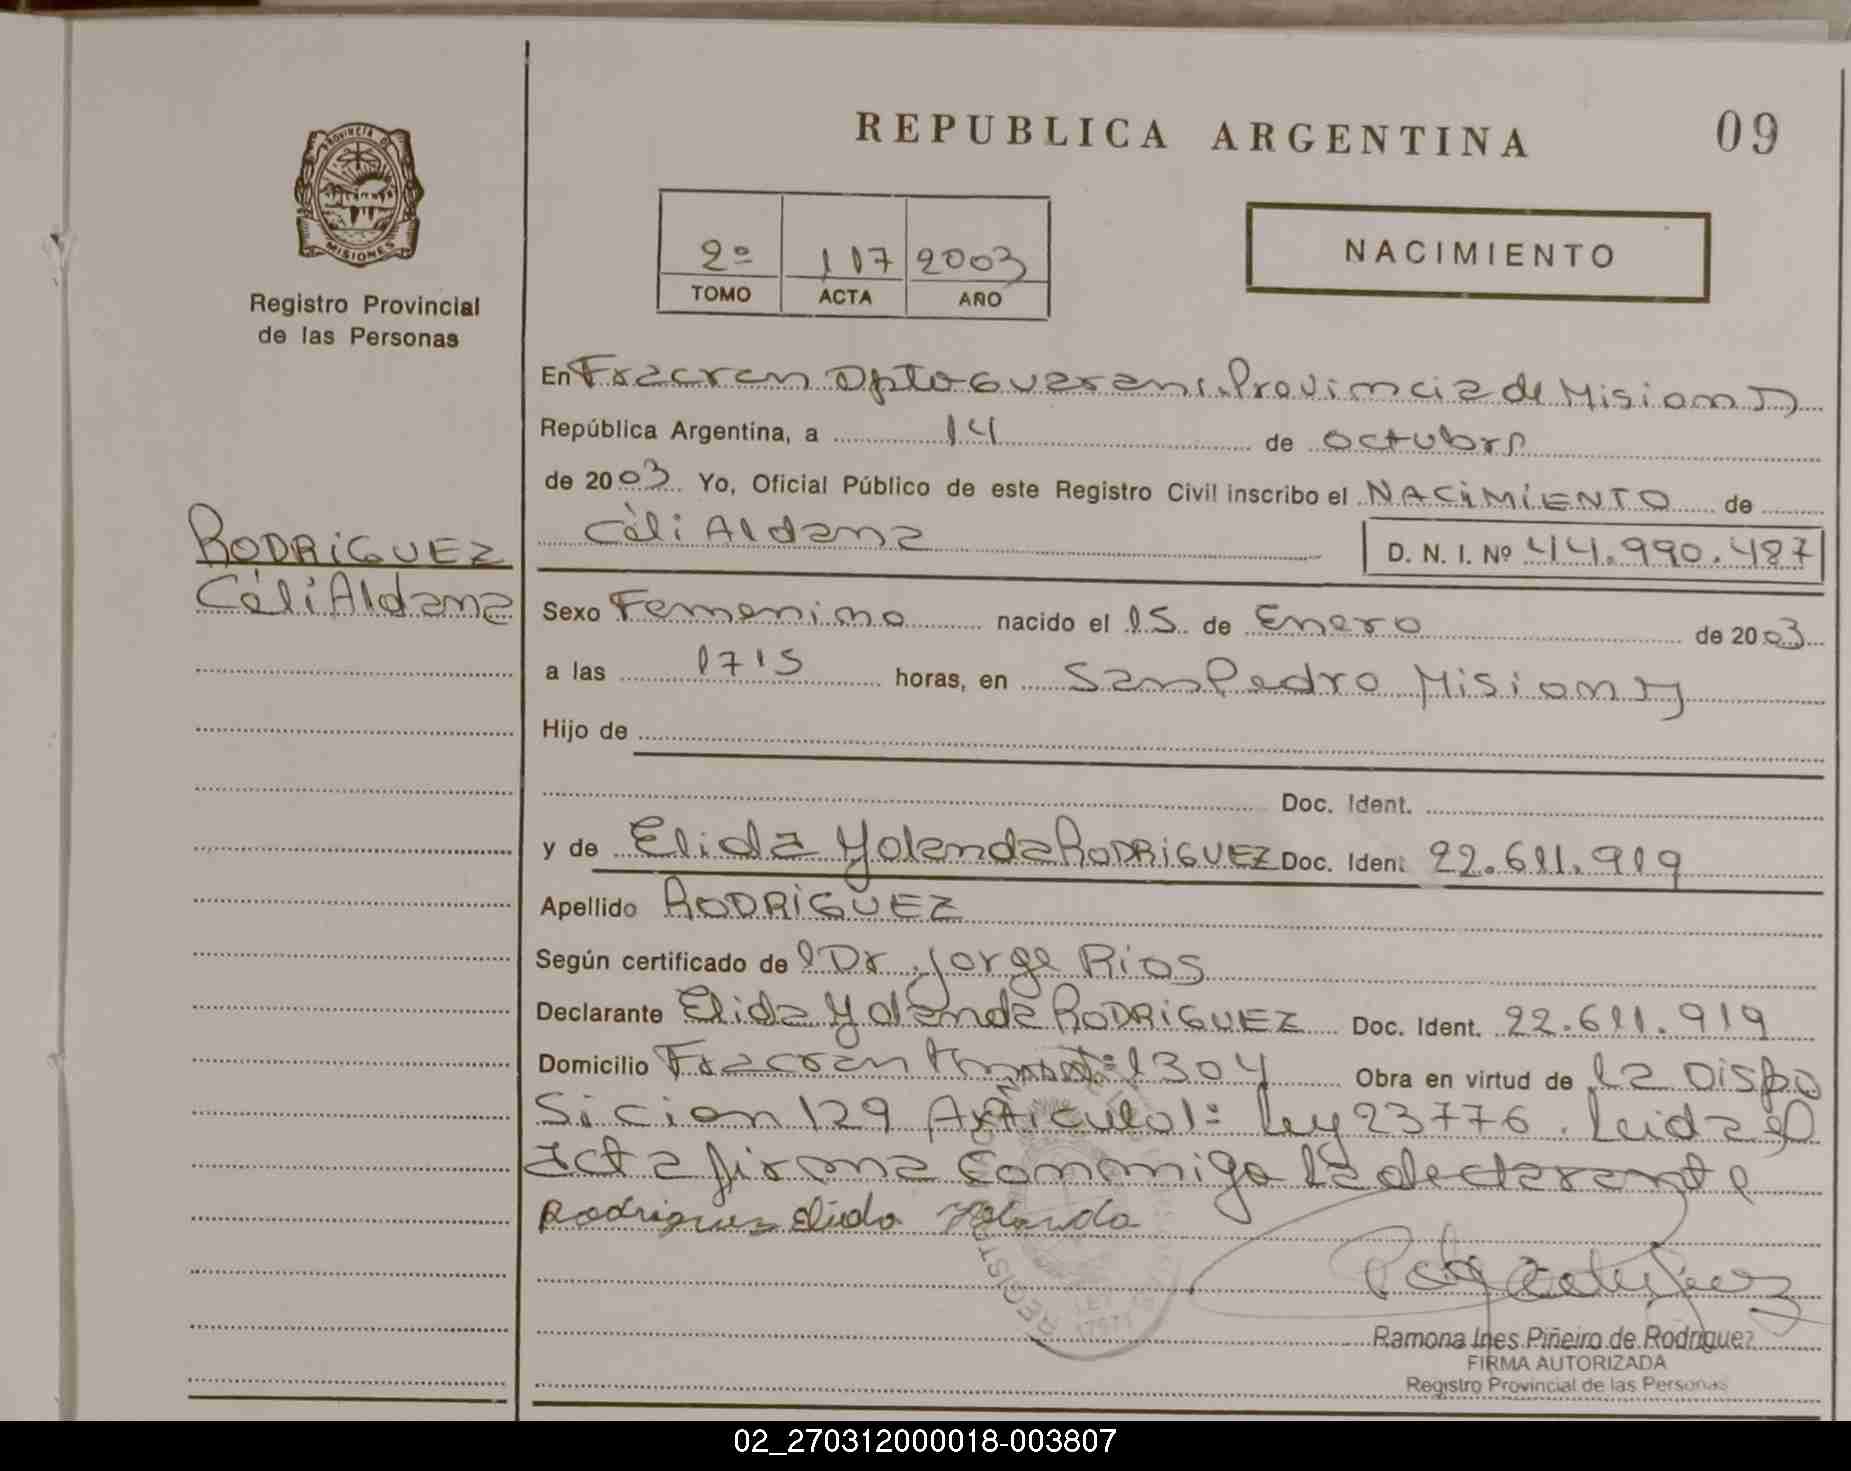 REPUBLICA ARGENTINA
09
PROVINCIA DE
MISIONES
Registro Provincial
de las Personas
2º 117 2003
TOMO ACTA AÑO
NACIMIENTO
En Fracran Dpto Guarani Provincia de Misiones
República Argentina, a 14 de octubre
de 2003 Yo, Oficial Público de este Registro Civil inscribo el NACIMIENTO de
Céli Aldana D. N. I. Nº 44.990.487
RODRIGUEZ
Céli Aldana
Sexo Femenino nacido el 15 de Enero de 2003
a las 1715 horas, en San Pedro Misiones
Hijo de
Doc. Ident.
y de Elida Yolanda RODRIGUEZ Doc. Iden. 22.611.919
Apellido RODRIGUEZ
Según certificado de l Dr Jorge Rios
Declarante Elida Yolanda RODRIGUEZ Doc. Ident. 22.611.919
Domicilio Fracran 1304 Obra en virtud de la Dispo
sicion 129 Articulo 1º Ley 23776. Leida el
acta firma conmigo la declarante
Rodriguez Elida Yolanda
REGISTR
Ramona Ines Piñeiro de Rodriguez
FIRMA AUTORIZADA
Registro Provincial de las Personas
02_270312000018-003807